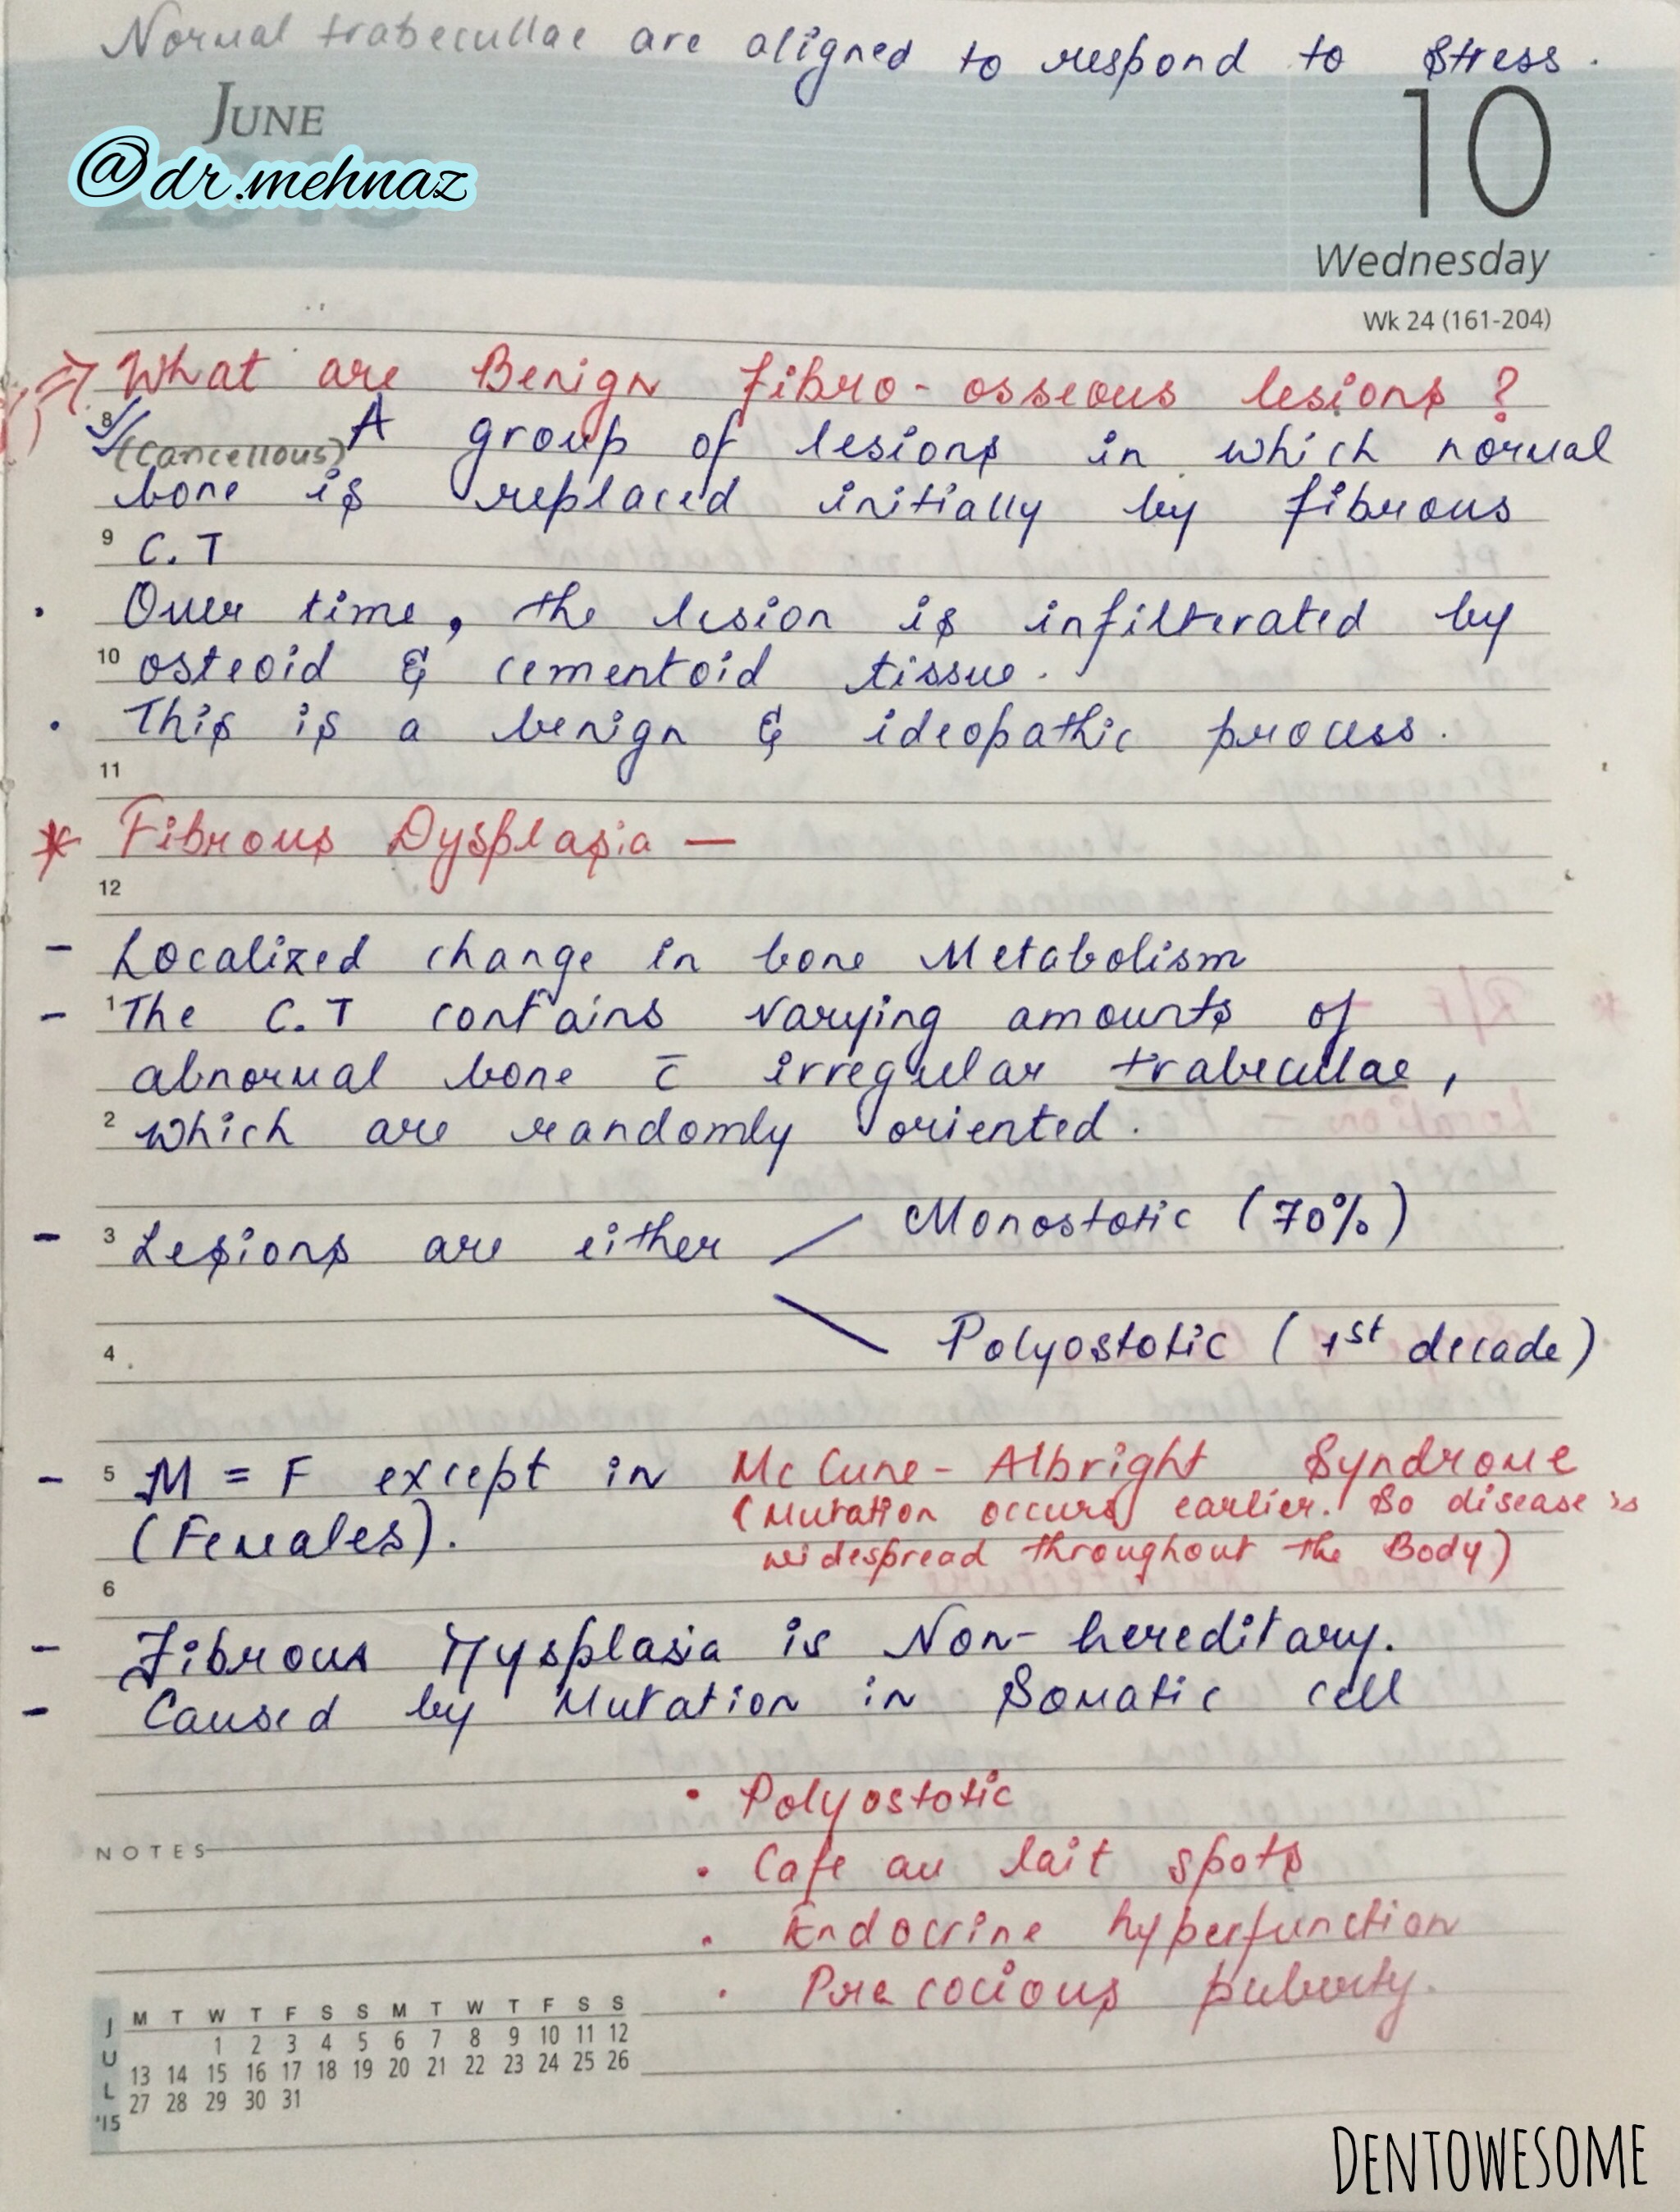 Normal trabecullae are aligned to respond to stress.
JUNE
@dr.mehnaz
10
Wednesday
Wk 24 (161-204)
⇒ What are Benign fibro-osseous lesions ?
8 A group of lesions in which normal
(Cancellous)
bone is replaced initially by fibrous
9 C.T
• Over time, the lesion is infilterated by
10 osteoid & cementoid tissue.
• This is a benign & ideopathic process.
11
* Fibrous Dysplasia —
12
- Localized change in bone Metabolism
- 1 The C.T contains varying amounts of
abnormal bone c̄ irregular trabecullae,
2 which are randomly oriented.
- 3 Lesions are either Monostotic (70%)
4 Polyostotic (1st decade)
- 5 M = F except in McCune-Albright Syndrome
(Mutation occurs earlier. So disease is
(Females). widespread throughout the Body)
6
- Fibrous Dysplasia is Non-hereditary.
- Caused by Mutation in Somatic cell
• Polyostotic
NOTES
• Cafe au lait spots
• Endocrine hyperfunction
• Precocious puberty.
JUL '15
M T W T F S S M T W T F S S
1 2 3 4 5 6 7 8 9 10 11 12
13 14 15 16 17 18 19 20 21 22 23 24 25 26
27 28 29 30 31
DENTOWESOME